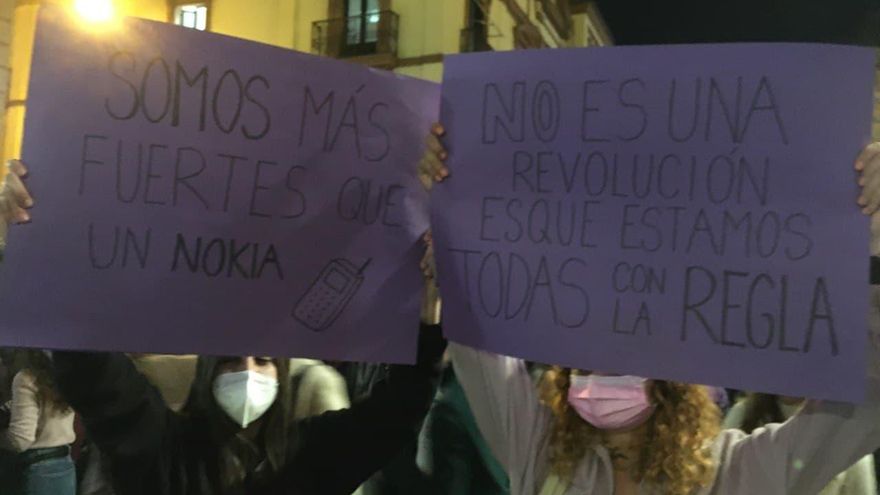 SOMOS MÁS
FUERTES QUE
UN NOKIA
NO ES UNA
REVOLUCIÓN
ES QUE ESTAMOS
TODAS CON
LA REGLA